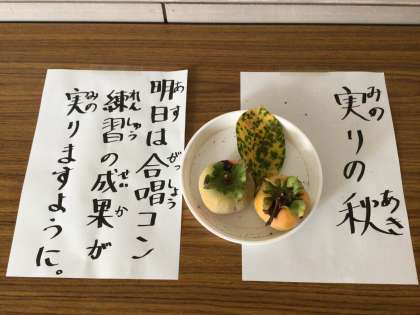 実りの秋
みの
あき
明日は合唱コン
あす
がっしょう
練習の成果が
れんしゅう
せいか
実りますように。
みの